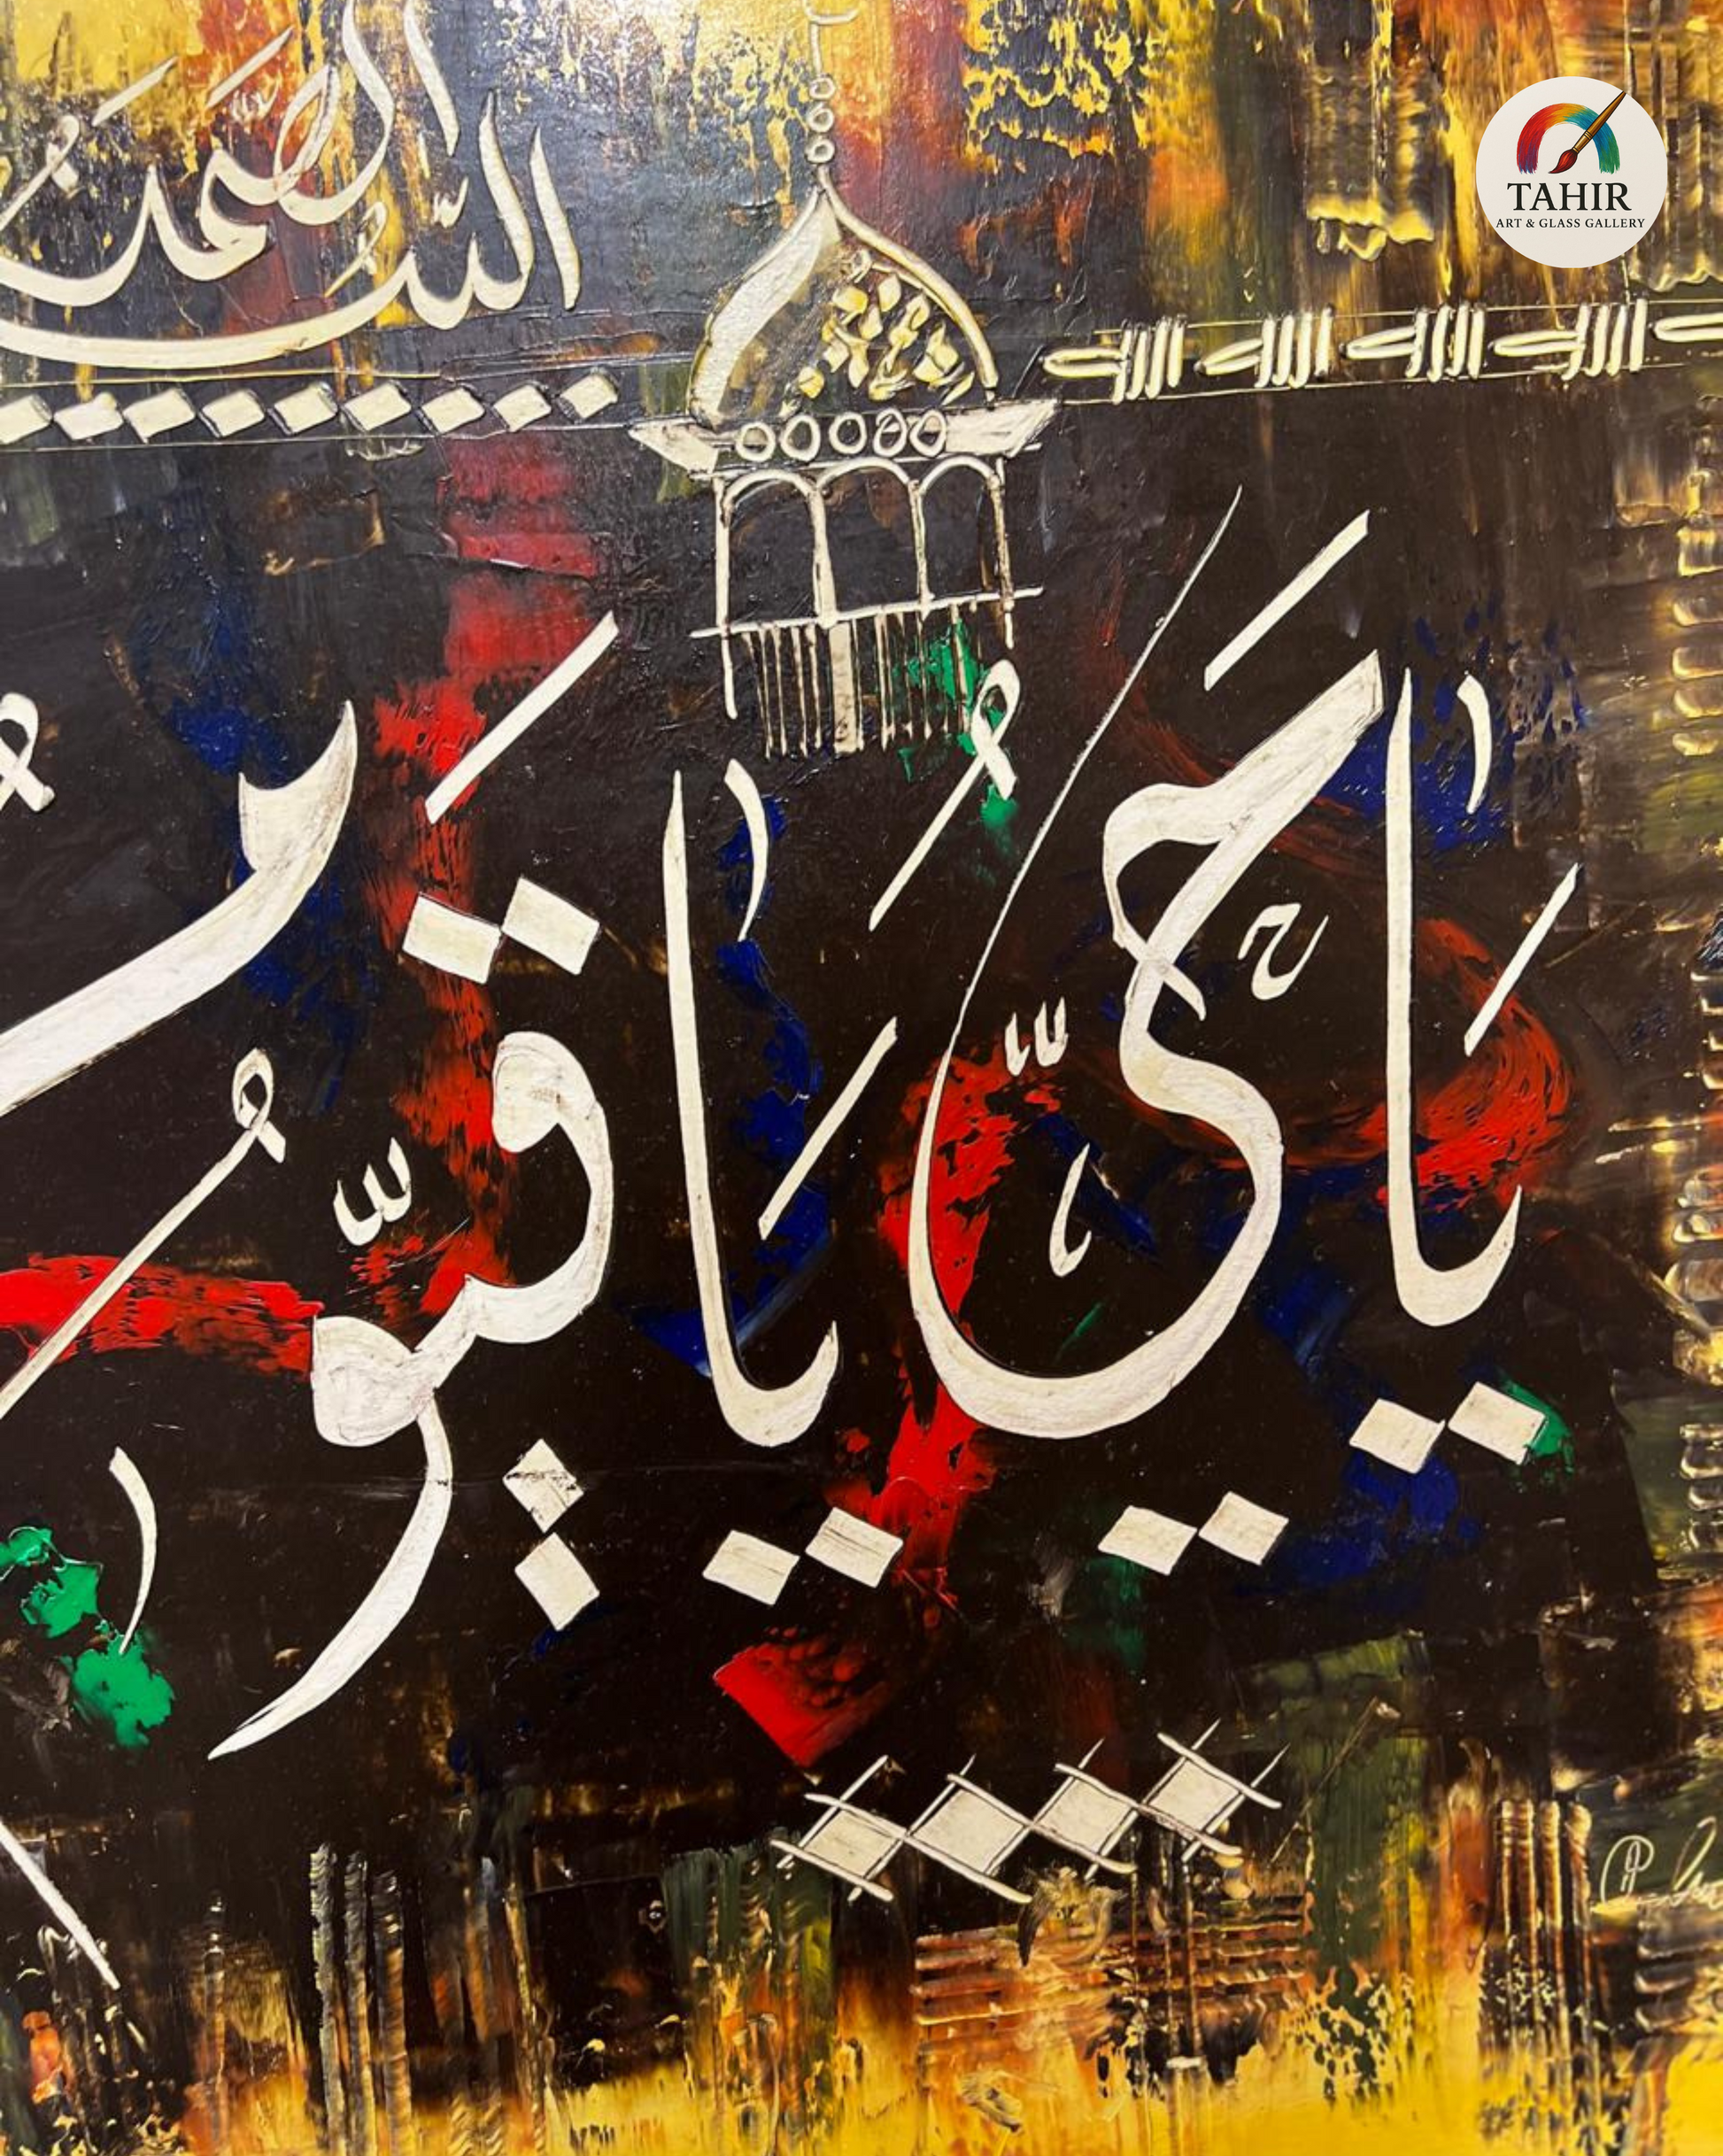 TAHIR
ART & GLASS GALLERY
الصمد
الله الله الله الله
يَا حَيُّ يَا قَيُّومُ